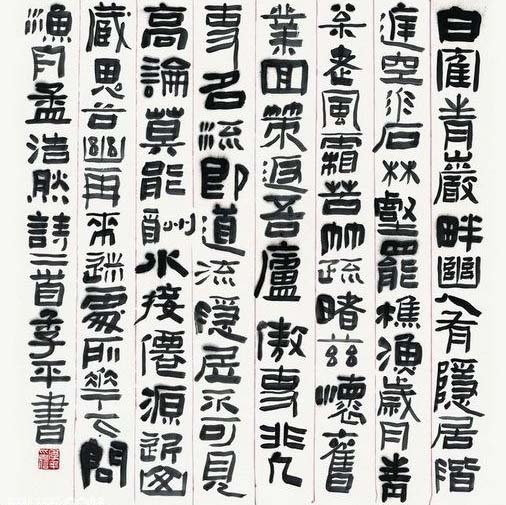 白隺青巖畔幽人有隱居階
庭空水石林壑罷樵漁歲月青
松老風霜苦竹疏睹茲懷舊
業回策返吾廬傲吏非凡
吏名流即道流隱居不可見
高論莫能酬水接僊源近山
藏鬼谷幽再來迷處所花下問
漁舟孟浩然詩二首季平書